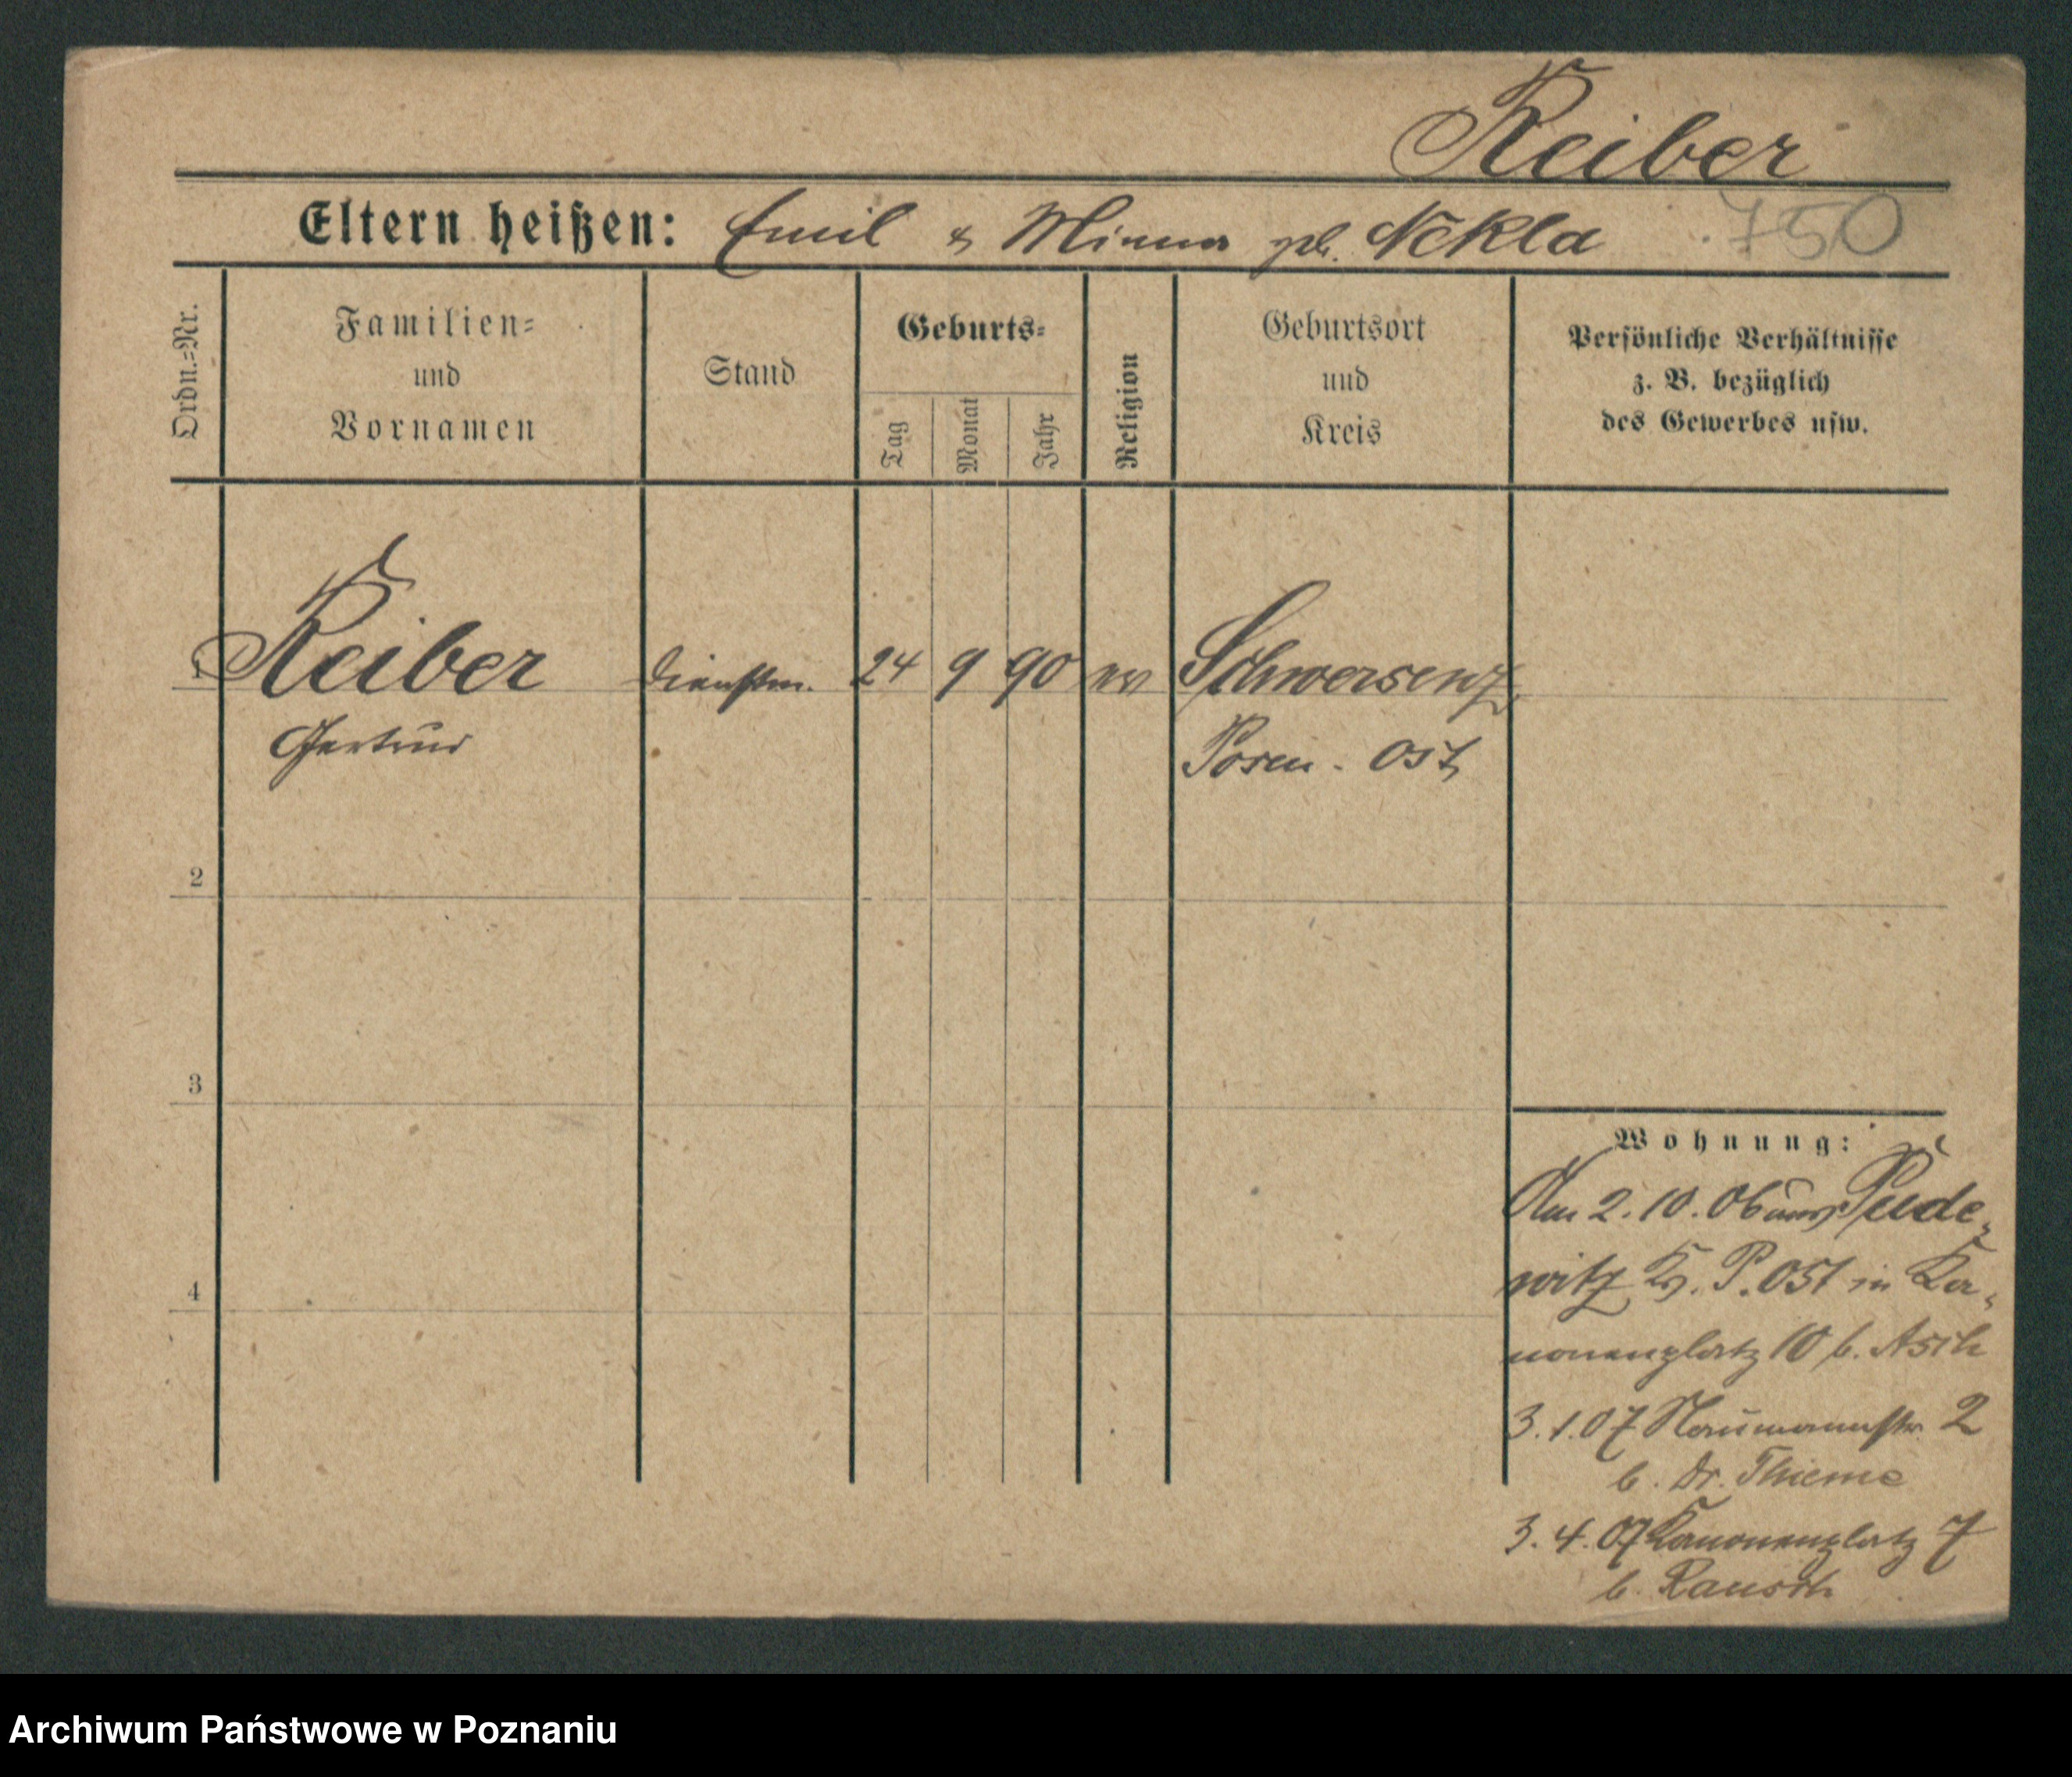 Reiber
Eltern heißen: Emil & Minna geb. Nekla 750
Ordn.=Nr.
Familien=
und
Vornamen
Stand
Geburts=
Tag
Monat
Jahr
Religion
Geburtsort
und
Kreis
Persönliche Verhältnisse
z. B. bezüglich
des Gewerbes usw.
1 Reiber Dienstm. 24 9 90 ev Schwersenz
Gertrud Posen. Ost
2
3
4
Wohnung:
Am 2.10.06 aus Pude-
witz Kr. P. Ost in Ka-
nonenplatz 10 b. Asch
3.1.07 Naumannstr. 2
b. Dr. Thieme
3.4.07 Kanonenplatz 7
b. Rausch
Archiwum Państwowe w Poznaniu